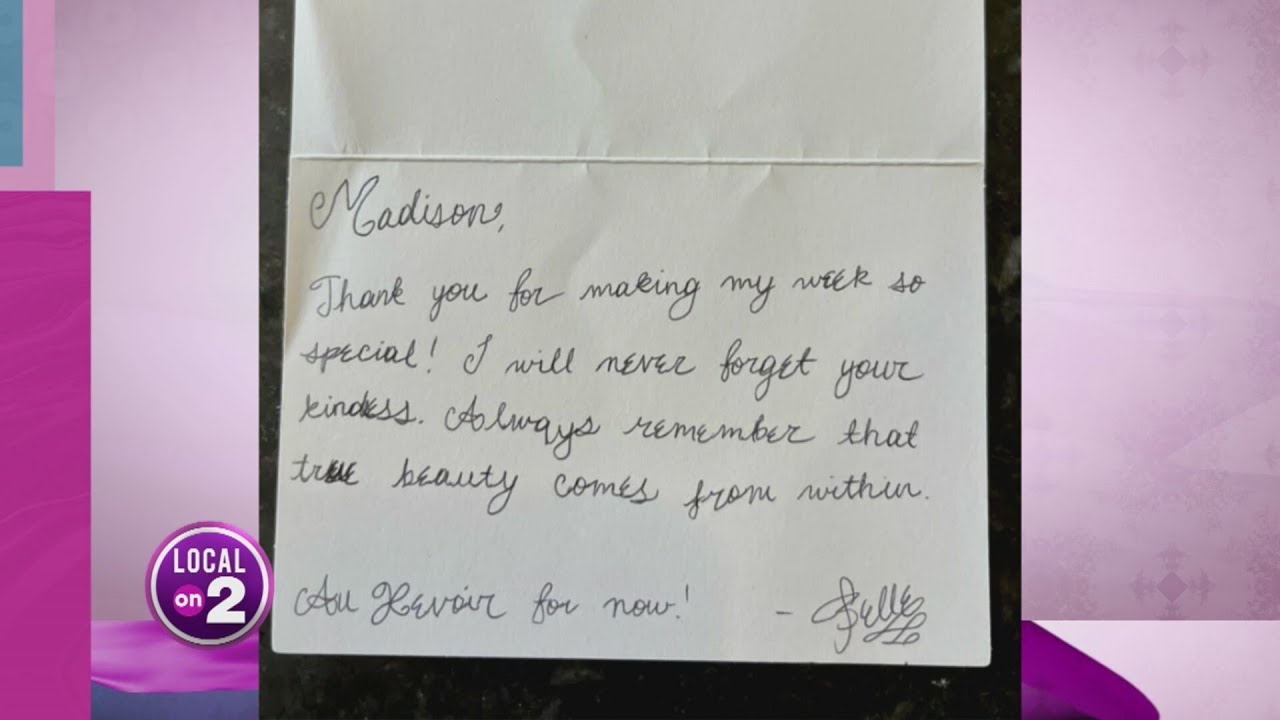 Madison,
Thank you for making my week so
special! I will never forget your
kindess. Always remember that
true beauty comes from within.
Au Revoir for now! - Belle
LOCAL
on 2